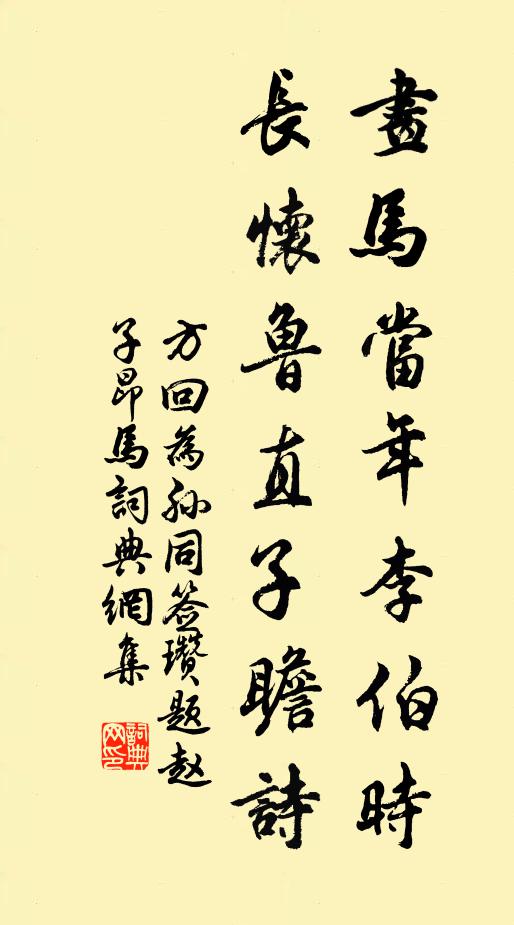 畫馬當年李伯時
長懷魯直子瞻詩
方回為孫同簽瓚題趙
子昂馬詞典網集
詞典网印